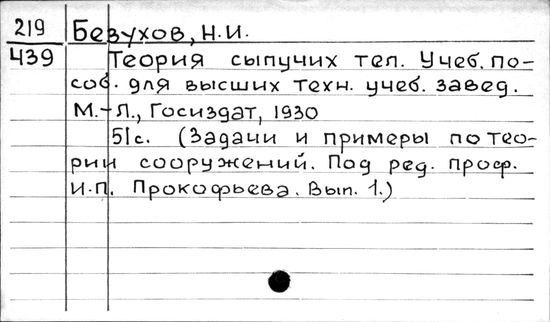 219 Безухов, Н.И.
439 Теория сыпучих тел. Учеб. по-
соб. для высших техн. учеб. завед.
М.-Л., Госиздат, 1930
51с. (Задачи и примеры по тео-
рии сооружений. Под ред. проф.
И.П. Прокофьева. Вып. 1.)